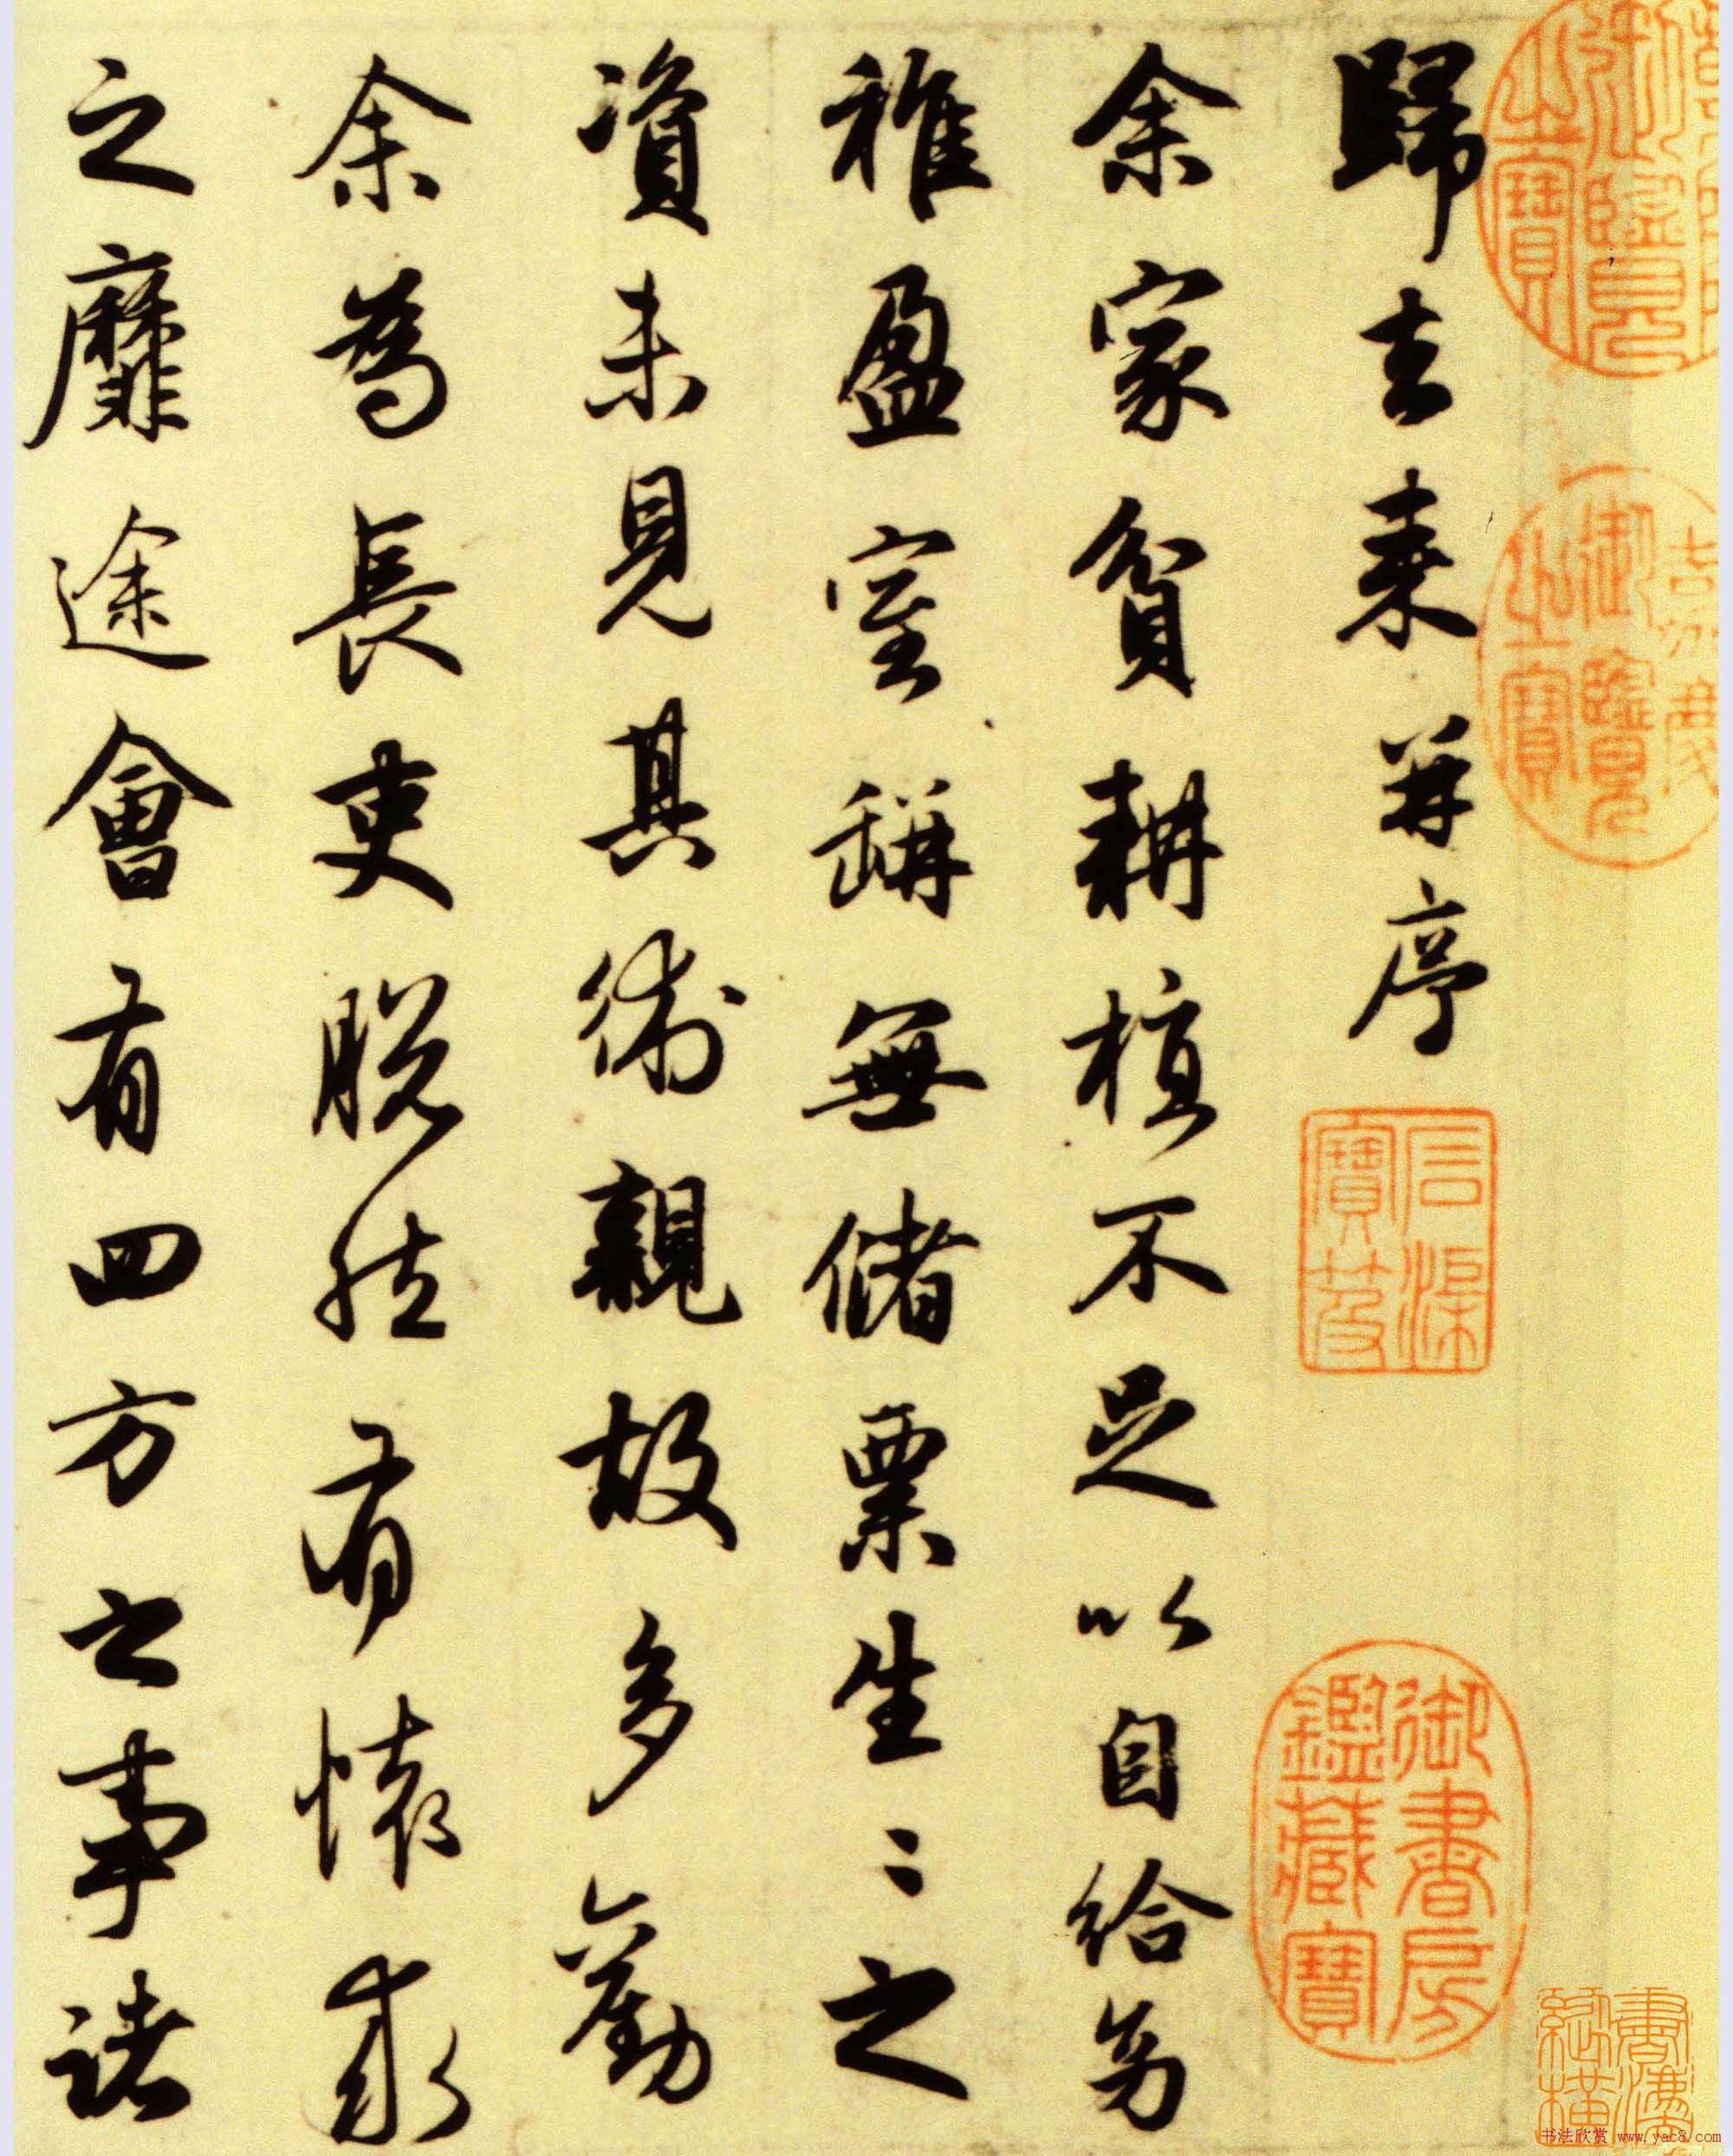 御覽之寶
嘉慶御覽之寶
歸去来并序
石渠寶笈
御書房鑑藏寶
余家貧耕植不足以自給幼
稚盈室缾無儲粟生〻之
資未見其術親故多勸
余為長吏脫然有懷求
之靡途會有四方之事諸
书法欣赏 www.yac8.com